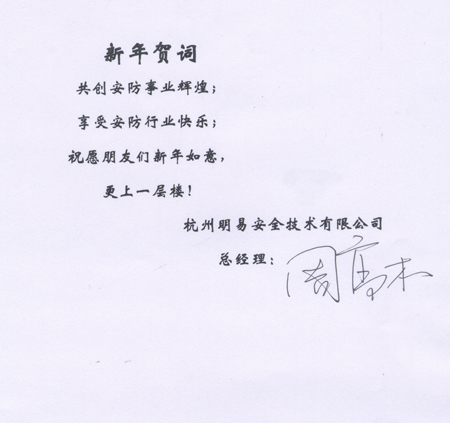 新年贺词
共创安防事业辉煌；
享受安防行业快乐；
祝愿朋友们新年如意，
更上一层楼！
杭州明易安全技术有限公司
总经理：